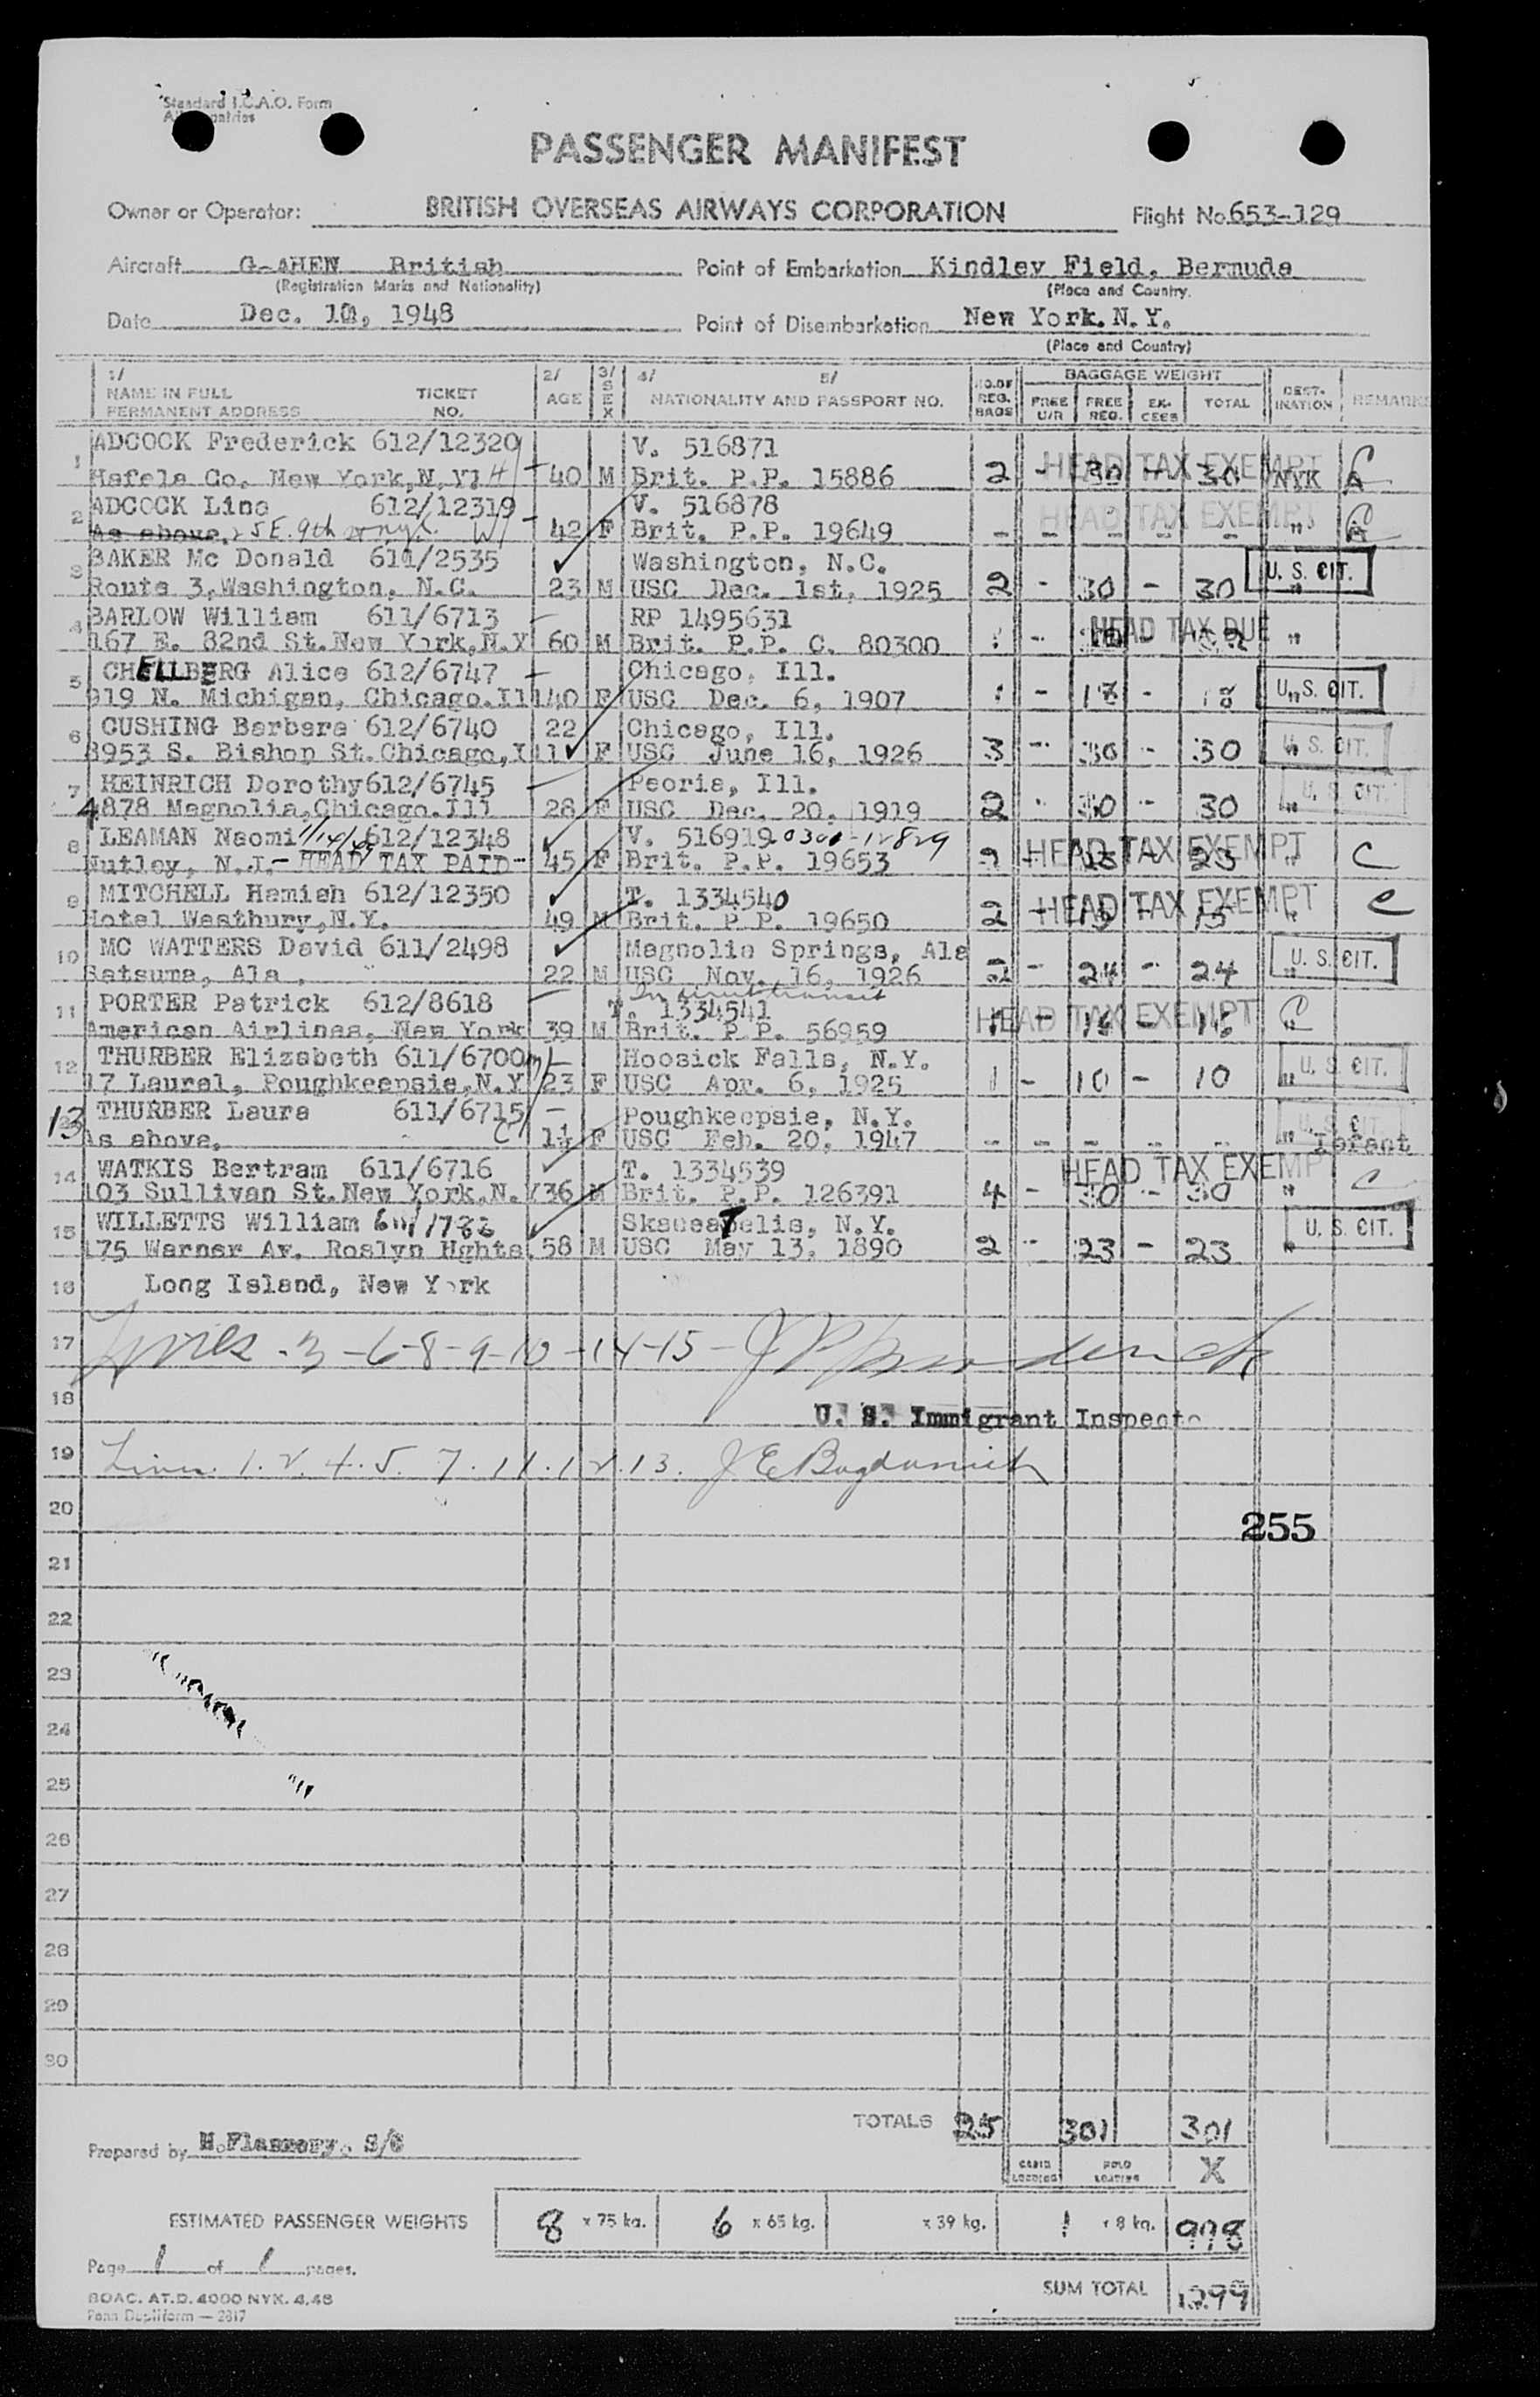 Standard I.C.A.O. Form
All Countries
PASSENGER MANIFEST
Owner or Operator: BRITISH OVERSEAS AIRWAYS CORPORATION Flight No. 653-129
Aircraft G-AHEN British Point of Embarkation Kindley Field, Bermuda
(Registration Marks and Nationality) (Place and Country.
Date Dec. 10, 1948 Point of Disembarkation New York.N.Y.
(Place and Country)
1/ NAME IN FULL PERMANENT ADDRESS TICKET NO. 2/ AGE 3/ SEX 4/ 5/ NATIONALITY AND PASSPORT NO. NO.OF REG. BAGS BAGGAGE WEIGHT FREE U/R FREE REG. EX-CESS TOTAL DEST-INATION REMARKS
1 ADCOCK Frederick 612/12320 V. 516871 HEAD TAX EXEMPT C
Hafele Co. New York,N.Y. H 40 M Brit. P.P. 15886 2 - 30 - 30 NYK A
2 ADCOCK Lina 612/12319 V. 516878 HEAD TAX EXEMPT C
As above, 25 E. 9th W 42 F Brit. P.P. 19649 - - - - - "
3 BAKER Mc Donald 611/2535 Washington, N.C. U. S. CIT.
Route 3,Washington, N.C. 23 M USC Dec. 1st, 1925 2 - 30 - 30 "
4 BARLOW William 611/6713 RP 1495631 HEAD TAX DUE
167 E. 82nd St.New York,N.Y 60 M Brit. P.P. C. 80300 "
5 CHELLBERG Alice 612/6747 Chicago, Ill. U. S. CIT.
919 N. Michigan, Chicago.Ill 40 F USC Dec. 6, 1907 1 - 18 - 18 "
6 CUSHING Barbara 612/6740 22 Chicago, Ill. U. S. CIT.
8953 S. Bishop St.Chicago,Ill F USC June 16, 1926 3 - 30 - 30 "
7 HEINRICH Dorothy 612/6745 Peoria, Ill. U. S. CIT.
4878 Magnolia,Chicago.Ill 28 F USC Dec. 20, 1919 2 - 30 - 30 "
8 LEAMAN Naomi 612/12348 V. 516919 0300-12829 HEAD TAX EXEMPT C
Nutley, N.J.- HEAD TAX PAID- 45 F Brit. P.P. 19653 2 - 23 - 23 "
9 MITCHELL Hamish 612/12350 T. 1334540 HEAD TAX EXEMPT C
Hotel Westbury,N.Y. 49 M Brit. P.P. 19650 2 - 15 - 15 "
10 MC WATTERS David 611/2498 Magnolia Springs, Ala U. S. CIT.
Satsuma, Ala. 22 M USC Nov. 16, 1926 2 - 24 - 24 "
In transit
11 PORTER Patrick 612/8618 T. 1334541 HEAD TAX EXEMPT C
American Airlines, New York 39 M Brit. P.P. 56959 "
12 THURBER Elizabeth 611/6700 M Hoosick Falls, N.Y. U. S. CIT.
17 Laurel, Poughkeepsie,N.Y 23 F USC Apr. 6, 1925 1 - 10 - 10 "
13 THURBER Laura 611/6715 Poughkeepsie, N.Y. U. S. CIT.
As above, C 1½ F USC Feb. 20, 1947 - - - - - " Infant
14 WATKIS Bertram 611/6716 T. 1334539 HEAD TAX EXEMPT C
103 Sullivan St.New York.N.Y 36 M Brit. P.P. 126391 4 - 30 - 30 "
15 WILLETTS William 611/1783 SkaneaTelis, N.Y. U. S. CIT.
175 Warner Av. Roslyn Hghts. 58 M USC May 13, 1890 2 - 23 - 23 "
16 Long Island, New York
17 Lines - 3-6-8-9-10-14-15-
18 U. S. Immigrant Inspector
19 Lines 1.2.4.5.7.11.12.13.
20
255
21
22
23
24
25
26
27
28
29
30
TOTALS 25 301 301
Prepared by H.Flannery. S/C
CABIN LOADING HOLD LOADING X
ESTIMATED PASSENGER WEIGHTS 8 x 75 kg. 6 x 65 kg. x 39 kg. 1 x 8 kg. 998
Page 1 of 1 pages.
SUM TOTAL 1299
BOAC. AT.D. 4000 NYK. 4.48
Penn Dupliform — 2817